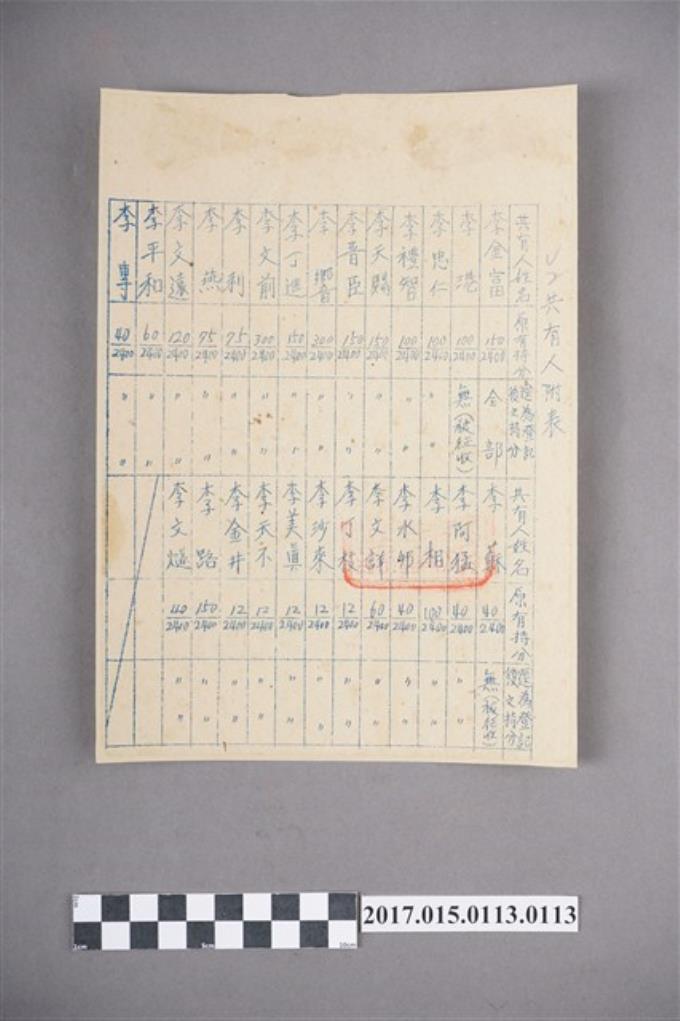 共有人附表
共有人姓名 原有持分 變為登記後之持分
李金富 150/2400 全部
李港 100/2400 無(被征收)
李忠仁 100/2400 〃 〃
李禮智 100/2400 〃 〃
李天賜 150/2400 〃 〃
李晋臣 150/2400 〃 〃
李響 300/2400 〃 〃
李丁進 150/2400 〃 〃
李文前 300/2400 〃 〃
李利 75/2400 〃 〃
李燕 75/2400 〃 〃
李文遠 120/2400 〃 〃
李平和 60/2400 〃 〃
李專 40/2400 〃 〃
共有人姓名 原有持分 變為登記後之持分
李蘇 40/2400 無(被征收)
李阿猛 40/2400 〃 〃
李柑 100/2400 〃 〃
李水 40/2400 〃 〃
李文詳 60/2400 〃 〃
李丁枝 12/2400 〃 〃
李沙來 12/2400 〃 〃
李美真 12/2400 〃 〃
李天不 12/2400 〃 〃
李金井 12/2400 〃 〃
李路 150/2400 〃 〃
李文燧 40/2400 〃 〃
1cm 5cm 10cm
2017.015.0113.0113